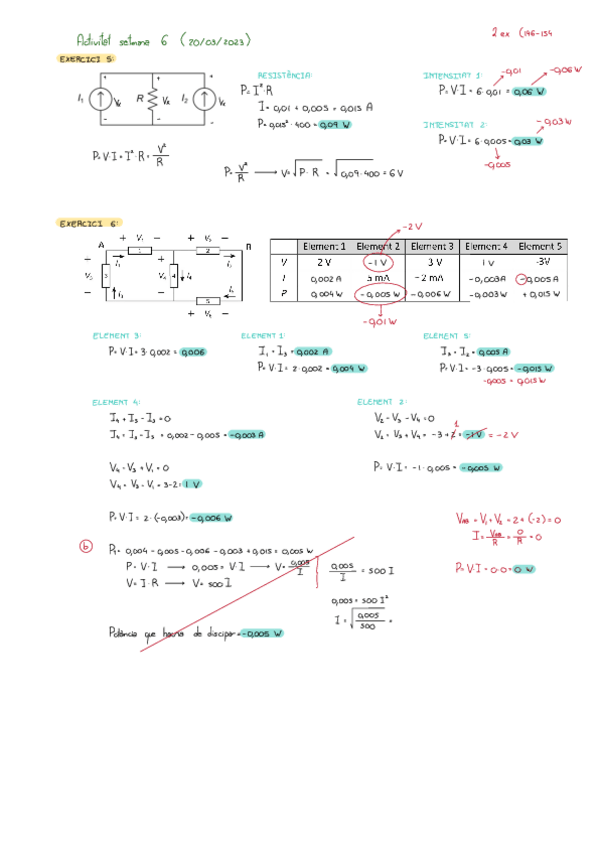 Activitat setmana 6 (20/03/2023)
2 ex (146-154
EXERCICI 5:
RESISTÈNCIA:
P= I²·R
I= 0,01 + 0,005 = 0,015 A
P= 0,015²·400 = 0,09 W
INTENSITAT 1:
-0,01
-0,06 W
P= V·I = 6·0,01 = 0,06 W
INTENSITAT 2:
-0,03 W
P= V·I = 6·0,005 = 0,03 W
-0,005
I₁ R I₂
P= V·I = I²·R = V²/R
P= V²/R → V= √P·R = √0,09·400 = 6 V
EXERCICI 6:
-2 V
Element 1 Element 2 Element 3 Element 4 Element 5
V 2 V -1 V 3 V 1 V -3V
I 0,002 A 5 mA -2 mA -0,003A -0,005 A
P 0,004 W -0,005 W -0,006 W -0,003W +0,015 W
-0,01 W
ELEMENT 3:
P= V·I= 3·0,002 = 0,006
ELEMENT 1:
I₁ = I₃ = 0,002 A
P= V·I = 2·0,002 = 0,004 W
ELEMENT 5:
I₅ = I₂ = 0,005 A
P= V·I= -3·0,005 = -0,015 W
-0,005 = 0,015 W
ELEMENT 4:
I₄ = I₃ - I₅ = 0,002 - 0,005 = -0,003 A
V₄ - V₃ + V₁ = 0
V₄ = V₃ - V₁ = 3-2 = 1 V
P= V·I = 2·(-0,003) = -0,006 W
ELEMENT 2:
1
= -1 V = -2 V
P= V·I = -1·0,005 = -0,005 W
VAB = V₁ + V₂ = 2 + (-2) = 0
I = VAB/R = 0/R = 0
P= V·I = 0·0 = 0 W
b
PT = 0,004 - 0,005 - 0,006 - 0,003 + 0,015 = 0,005 W
P= V·I → 0,005 = V·I → V= 0,005/I
V= I·R → V= 500 I
0,005/I = 500 I
0,005 = 500 I²
I= √0,005/500 =
Potència que hauria de discipar = -0,005 W